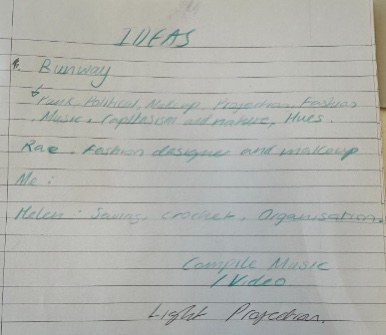 IDEAS
1. Runway
↳ Punk, Political, Makeup, Projection, Fashion
, Music, Capitalism and nature, Hues.
Rae. Fashion designer and makeup
Me:
Helen: Sewing, crochet, Organisation.
Compile Music
/ Video
Light Projection.